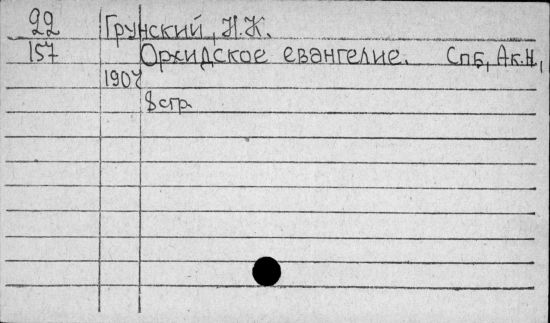 22 Грунский, Н.К.
157 Орхидское евангелие. Спб, Ак.Н,
1907
8 стр.